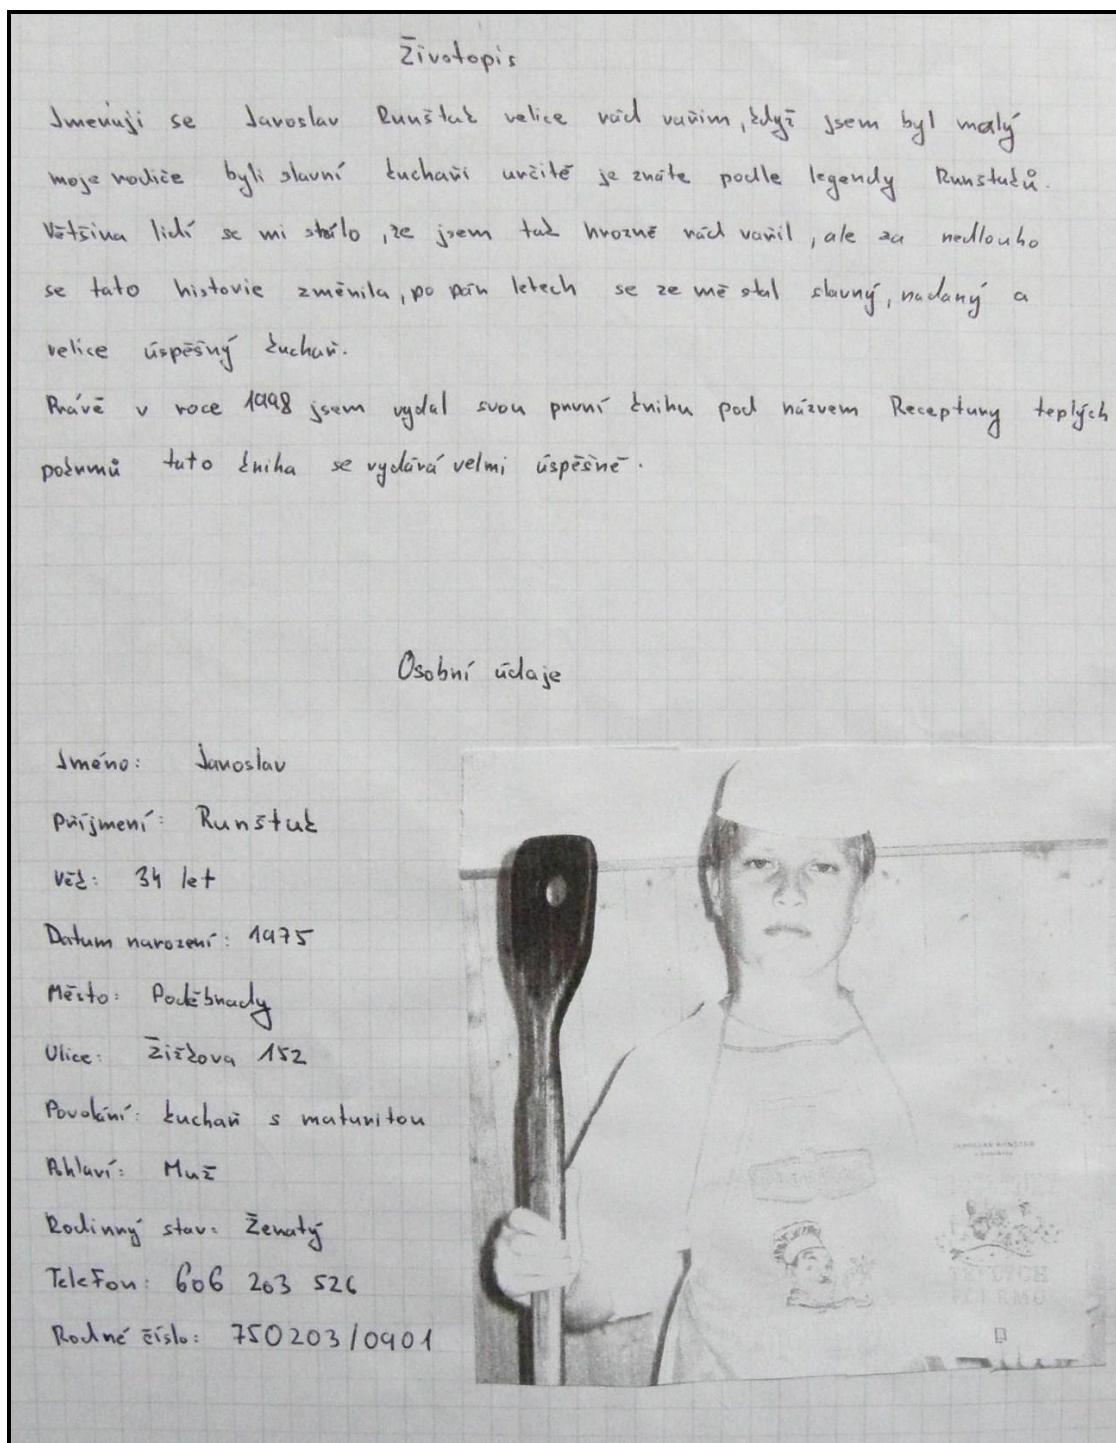 Životopis
Jmenuji se Jaroslav Runštuk velice rád vařim, když jsem byl malý
moje rodiče byli slavní kuchaři určitě je znáte podle legendy Runštuků.
Většina lidí se mi smálo, že jsem tak hrozně rád vařil, ale za nedlouho
se tato historie změnila, po pár letech se ze mě stal slavný, nadaný a
velice úspěšný kuchař.
Právě v roce 1998 jsem vydal svou první knihu pod názvem Receptury teplých
pokrmů tato kniha se vydává velmi úspěšně.
Osobní údaje
Jméno: Jaroslav
Příjmení: Runštuk
Věk: 34 let
Datum narození: 1975
Město: Poděbrady
Ulice: Žižkova 152
Povolání: kuchař s maturitou
Pohlaví: Muž
Rodinný stav: Ženatý
Telefon: 606 203 526
Rodné číslo: 750203/0901